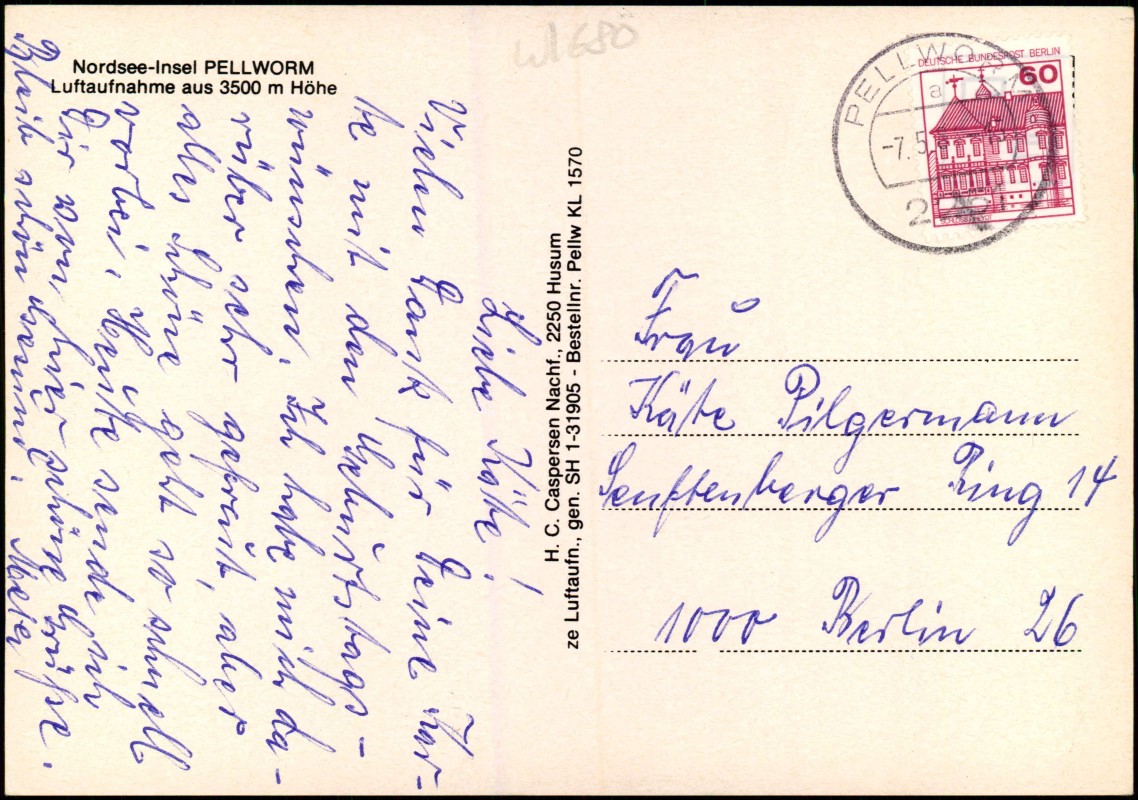 Nordsee-Insel PELLWORM
Luftaufnahme aus 3500 m Höhe
Liebe Käte!
Vielen Dank für Deine Kar-
te mit den Geburtstags-
wünschen. Ich habe mich da-
rüber sehr gefreut, aber
alles schöne geht so schnell
vorbei. Heute sende ich
Dir von hier schöne Grüße.
Bleib schön gesund.
H. C. Caspersen Nachf., 2250 Husum
ze Luftaufn., gen. SH 1-31905 - Bestellnr. Pellw KL 1570
DEUTSCHE BUNDESPOST BERLIN
60
PELLWORM
a
-7.5.
Frau
Käte Pilgermann
Senftenberger Ring 14
1000 Berlin 26